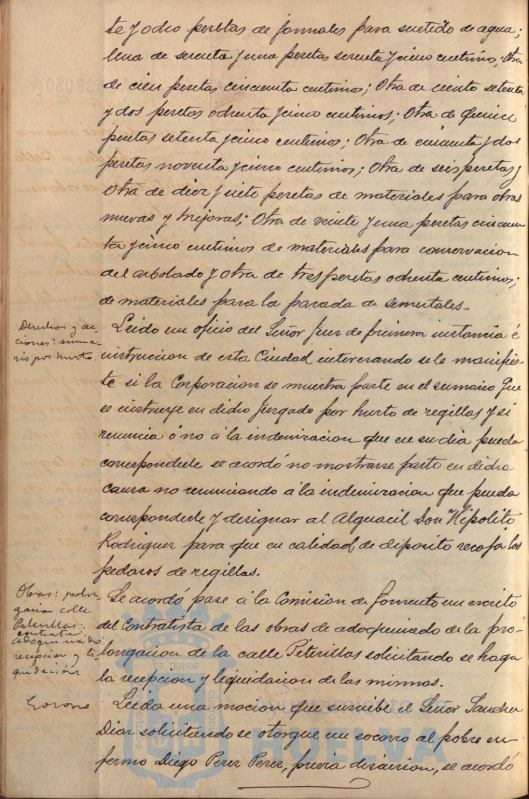 te y ocho pesetas de jornales para surtido de agua;
Una de sesenta y una pesetas sesenta y cinco centimos; Otra
de cien pesetas cincuenta centimos; Otra de ciento setenta
y dos pesetas ochenta y cinco centimos; Otra de quince
pesetas setenta y cinco centimos; Otra de cincuenta y dos
pesetas noventa y cinco centimos; Otra de seis pesetas y
Otra de diez y siete pesetas de materiales para obras
nuevas y mejoras; Otra de veinte y una pesetas cincuen-
ta y cinco centimos de materiales para conservacion
del arbolado y otra de tres pesetas ochenta centimos;
de materiales para la parada de sementales.
Derechos y ac-
ciones: suma-
rio por hurto
Leido un oficio del Señor Juez de primera instancia é
instruccion de esta Ciudad interesando se le manifies-
te si la Corporacion se muestra parte en el sumario que
se instruye en dicho Juzgado por hurto de regillas y si
renuncia ó no á la indemnizacion que en su dia pueda
corresponderle se acordó no mostrarse parte en dicha
causa no renunciando á la indemnizacion que pueda
corresponderle y designar al Alguacil Don Hipólito
Rodriguez para que en calidad de deposito recoja los
pedazos de regillas.
Obras: prolon-
gacion calle
Puterillas:
contrata
adoquinado
recepcion y li-
quidación
Se acordó pase á la Comision de fomento un escrito
del Contratista de las obras de adoquinado de la pro-
longacion de la calle Puterillas solicitando se haga
la recepcion y liquidacion de las mismas.
Socorro
Leida una mocion que suscribe el Señor Sanchez
Diaz solicitando se otorgue un socorro al pobre en-
fermo Diego Perez Perez, previa discusion, se acordó
HUELVA